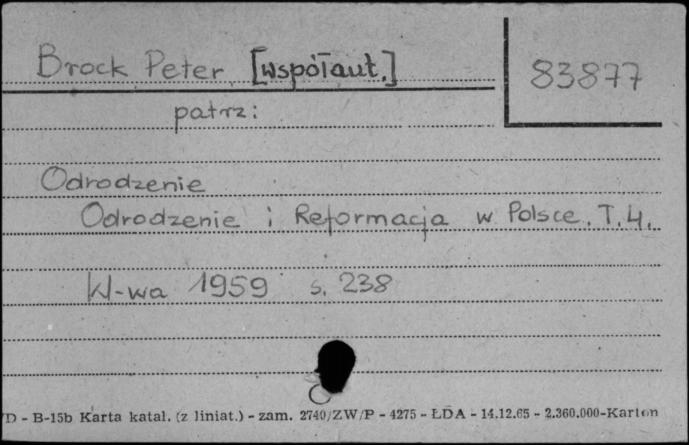 Brock Peter [współaut.]
83877
patrz:
Odrodzenie
Odrodzenie i Reformacja w Polsce. T. 4.
W-wa 1959 s. 238
/D - B-15b Karta katal. (z liniat.) - zam. 2740/ZW/P - 4275 - ŁDA - 14.12.65 - 2.360.000-Karton